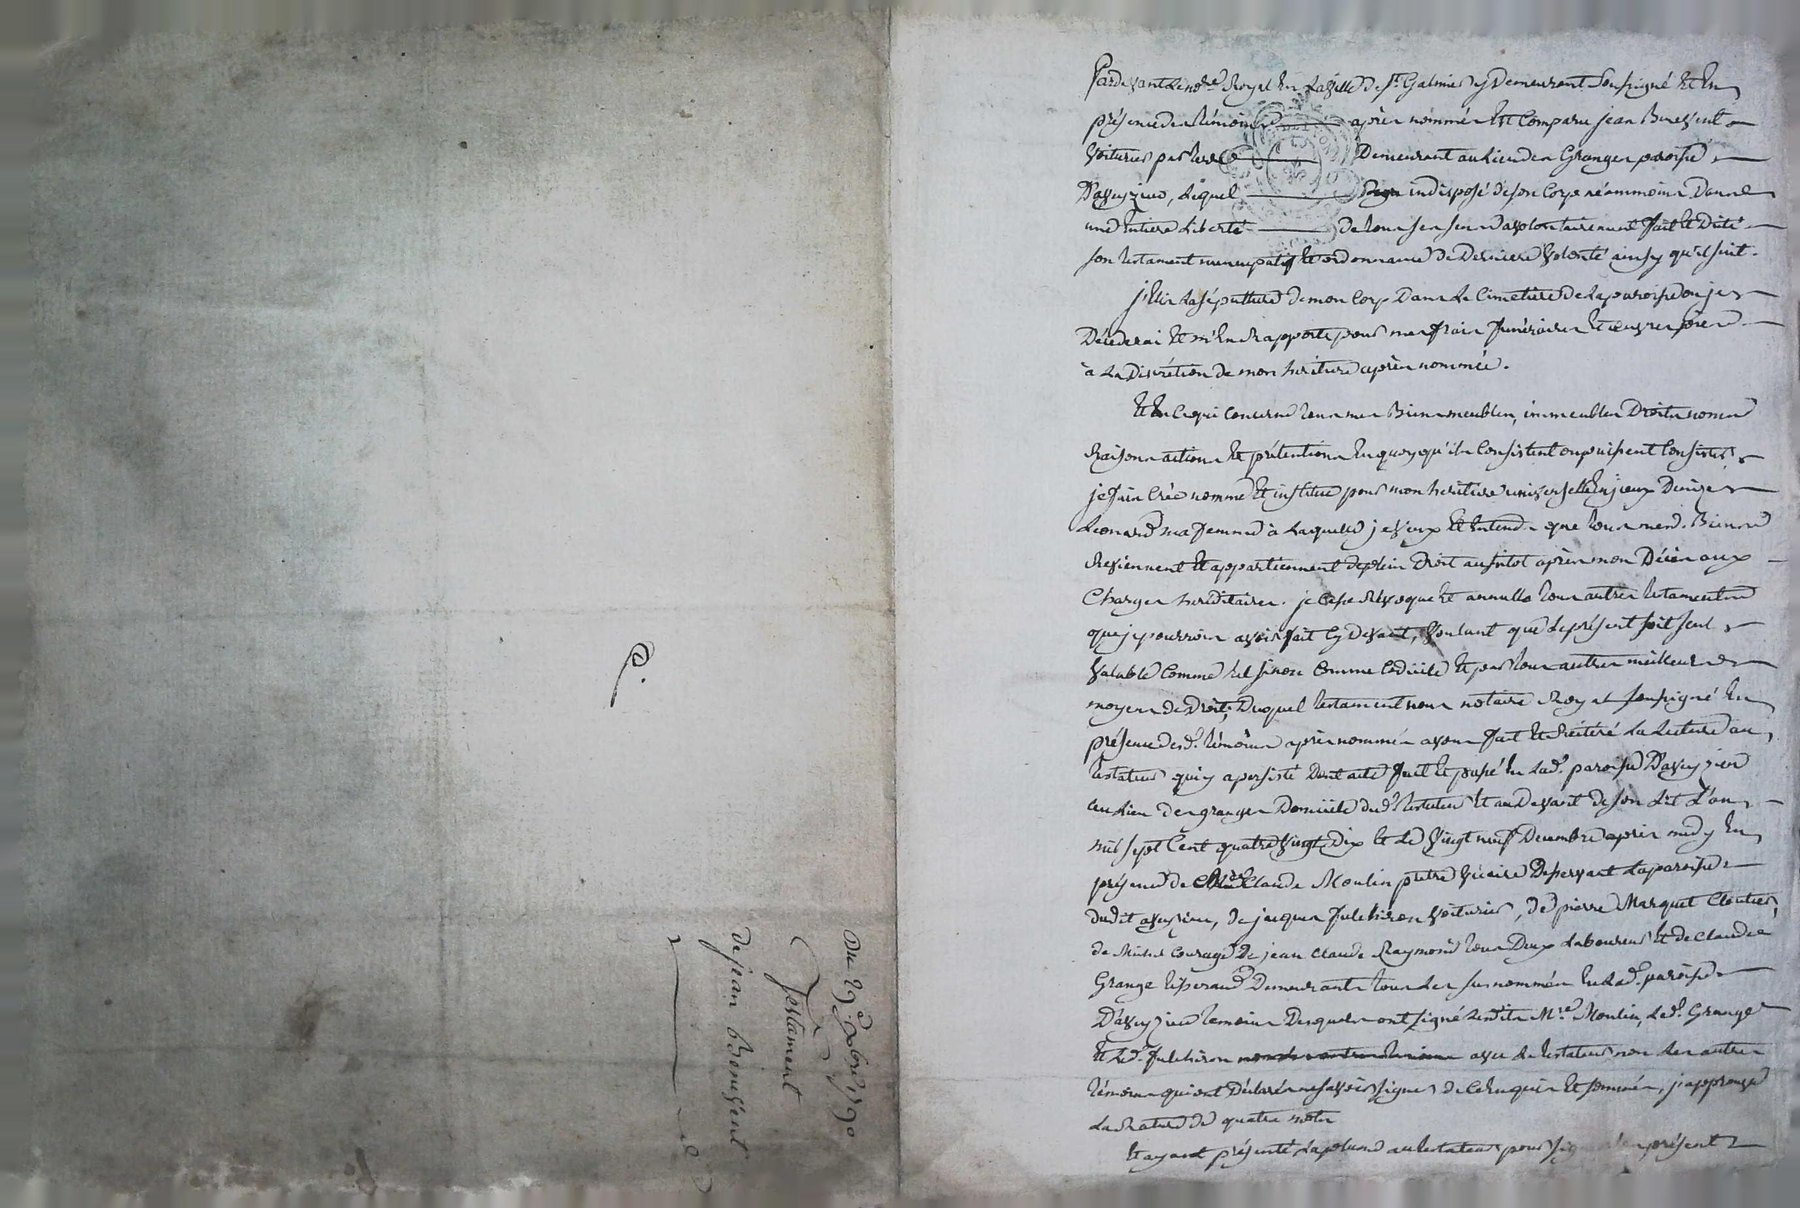 P.
Du 29 xbre 1790
Testament
de jean Benevent
Pardevant le no.re Royal En la ville de st Galmier y Demeurant soussigné Et En
présence des témoins après nommés Est Comparu jean Benevent
voiturier par terre Demeurant au Lieu des Granges paroisse
D'aveyzieu, Lequel indisposé de son Corps néammoins Dans
une Entiere Liberté de tous ses sens a volontairement fait Et Dicté
son testament nuncupatif Et ordonnance de Derniere volonté ainsy qu'il suit.
j'Elis la sépulture de mon Corps Dans Le Cimetière de la paroisse ou je
Décéderai Et m'En Rapporte pour mes frais funéraires Et œuvres pies
à La Discrétion de mon héritiere après nommée.
Et En Ce qui Concerne tous mes Biens meubles, immeubles Droits noms
Raisons actions Et prétentions En quoy qu'ils Consistent ou puissent Consister
je fais Crée nomme Et institue pour mon héritiere universelle
Leonard ma femme à Laquelle je veux Et Entends que tous mesd. Biens
Reviennent Et appartiennent de plein Droit aussitot après mon Décès aux
Charges héréditaires. je Casse Révoque Et annulle tous autres testaments
que je pourrois avoir fait Cy Devant, voulant que Le présent soit seul
valable Comme tel sinon Comme Codicile Et par tous autres meilleurs
moyens de Droit, Duquel testament nous notaire Royal soussigné En
présence desd. témoins après nommés avons fait Et Réitéré La Lecture au
testateur qui y a persisté Dont acte fait Et passé En Lad. paroisse D'aveyzieu
au Lieu des granges Domicile dud. testateur Et au Devant de son Lit L'an
mil sept Cent quatre vingt Dix Et Le vingt neuf Décembre après midy En
présence de Claude Moulin prêtre vicaire Desservant La paroisse
dudit aveyzieu, de jacques fulchiron voiturier, de pierre Marquet Cloutier,
de Michel Courage De jean Claude Raymond tous Deux Laboureurs Et de Claude
Grange Demeurants tous Les susnommés En Lad. paroisse
D'aveyzieu témoins Desquels ont signé Ledit Mre Moulin, Led. Grange
Et Led. fulchiron avec Le testateur non Les autres
témoins qui ont Déclaré ne savoir signer de Ce Enquis Et sommés, j'approuve
La Rature de quatre mots
Et ayant présenté La plume au testateur pour présent